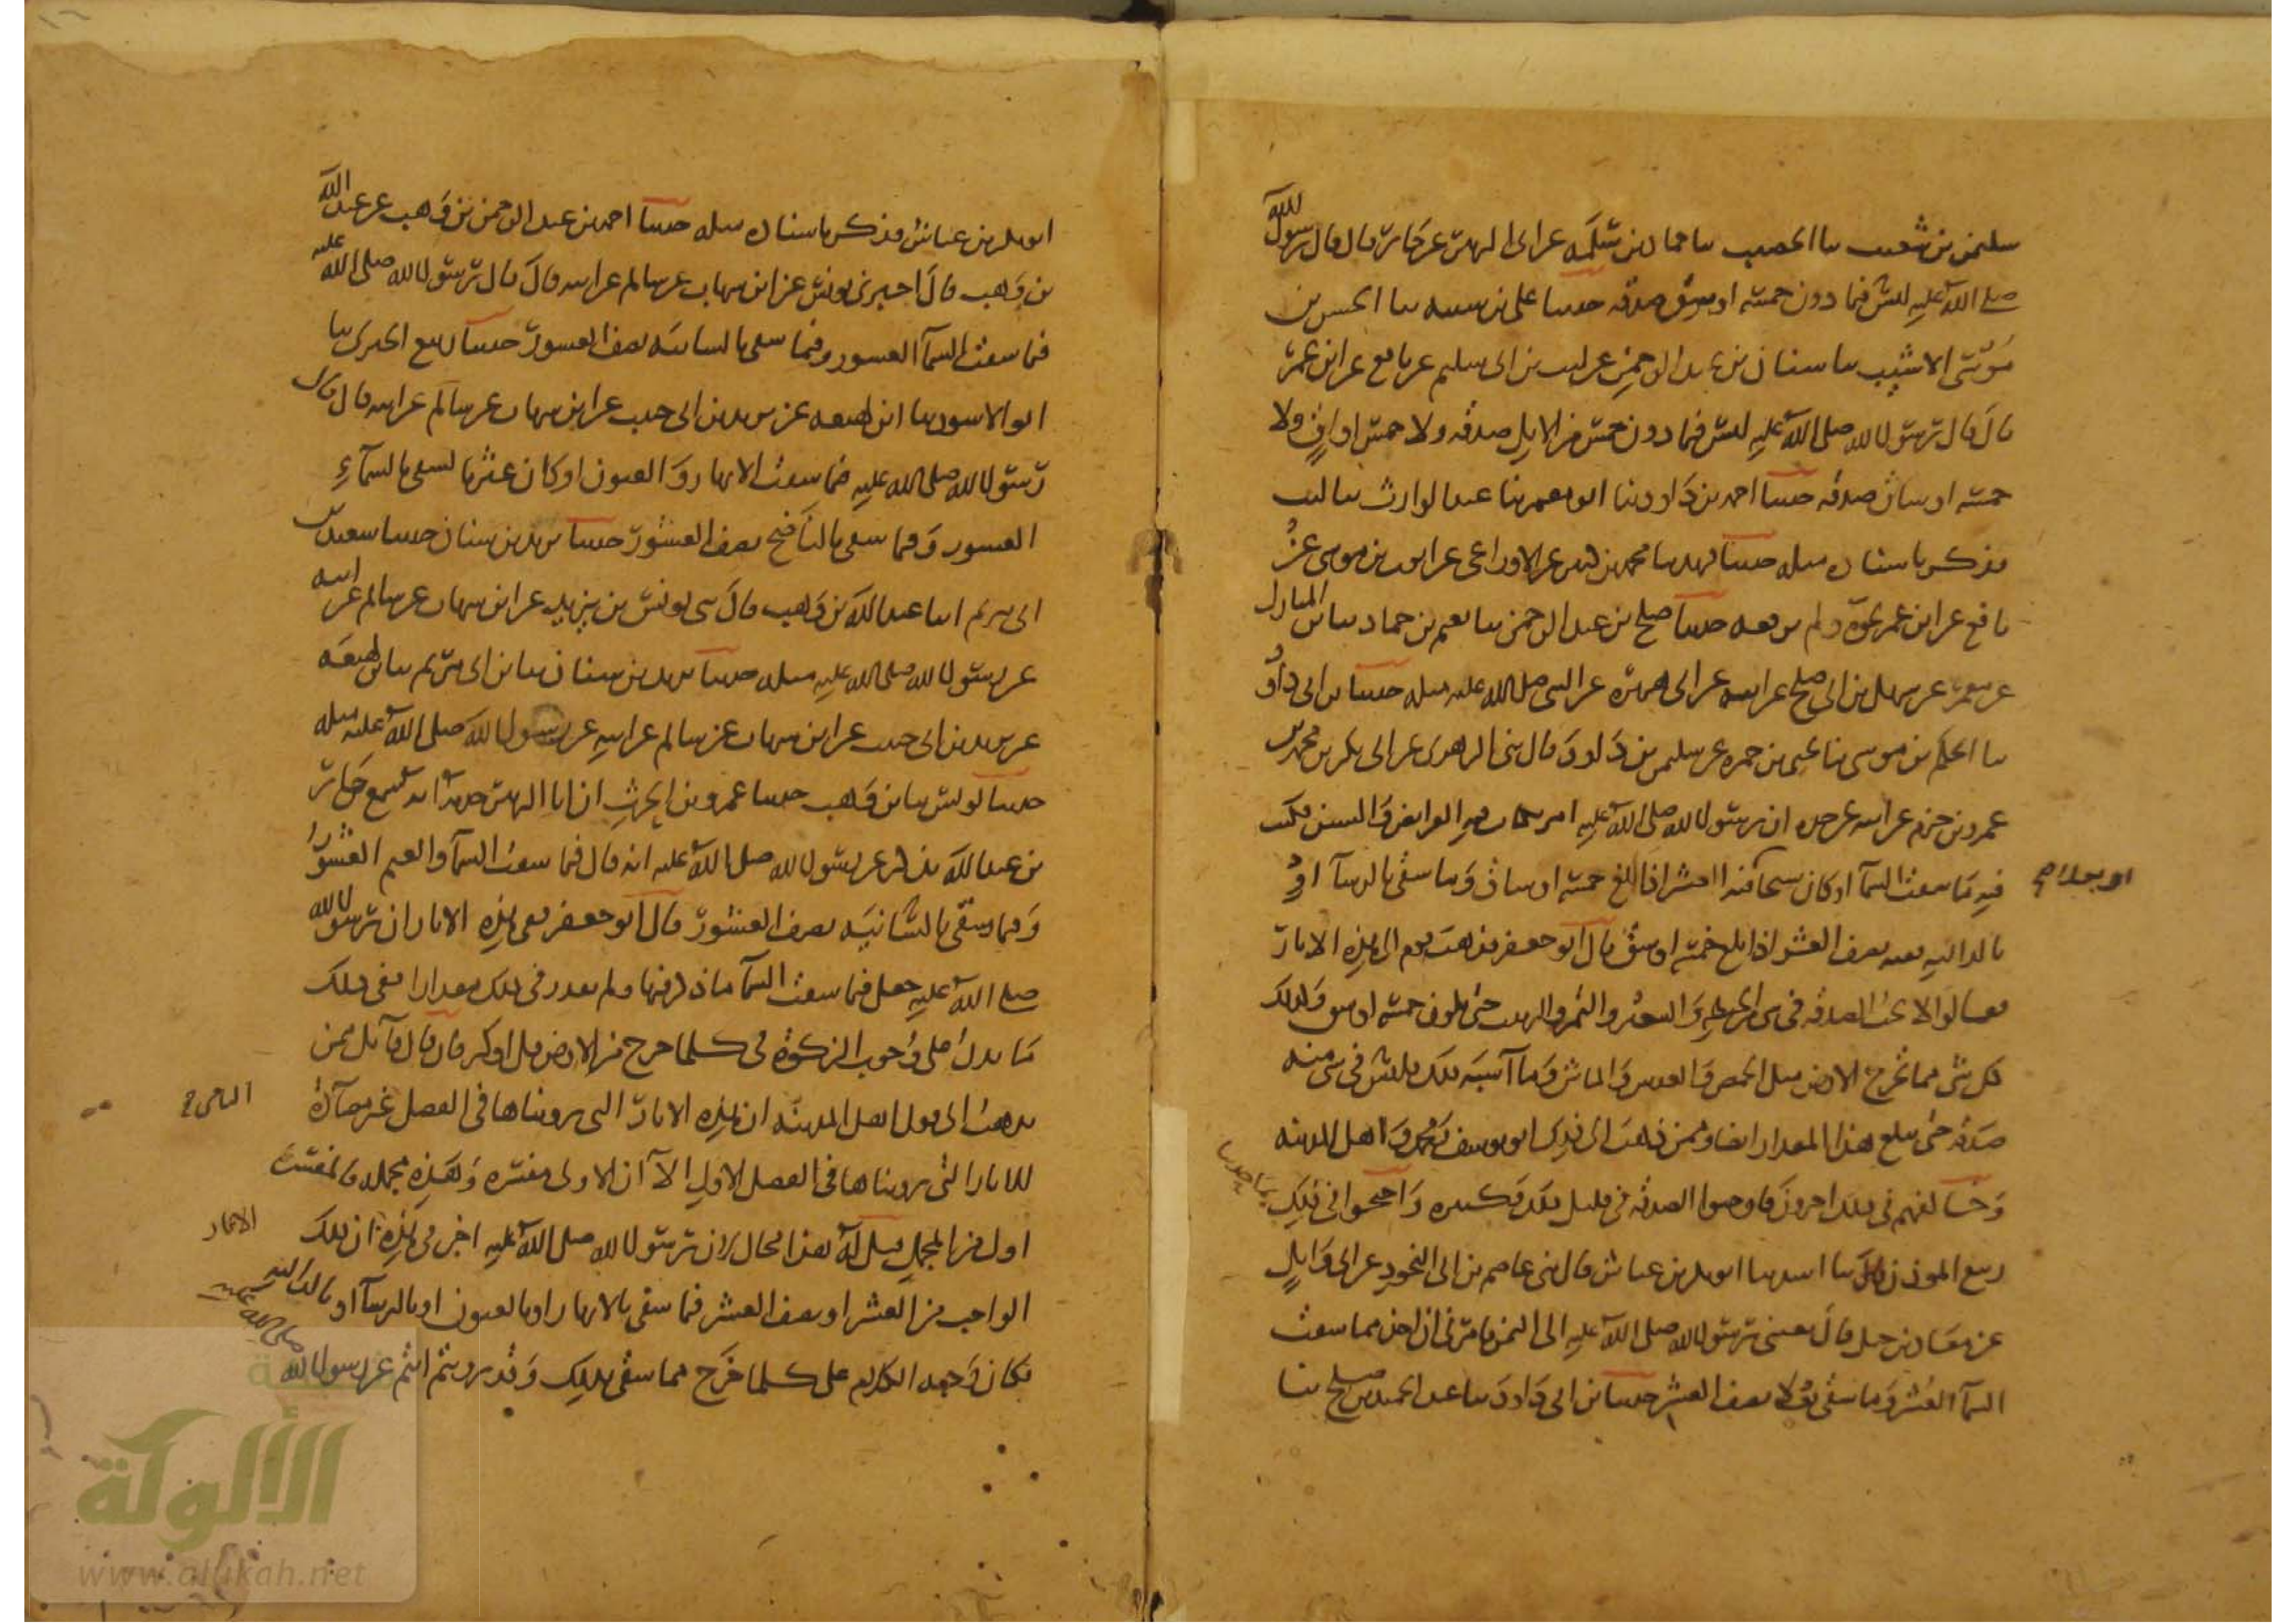 سليمن بن شعيب سا الخصيب سا حماد بن سلمه عن ابى الزبير عن جابر قال قال رسول الله
صلى الله عليه ليس فيما دون خمسة اوسق صدقه حدثنا على بن شيبه سا الحسن بن
موسى الاشيب سا شيبان بن عبد الرحمن عن ليث بن ابى سليم عن نافع عن ابن عمر
قال قال رسول الله صلى الله عليه ليس فيما دون خمس من الابل صدقه ولا خمس اواق ولا
خمسة اوساق صدقه حدثنا احمد بن داود بنا ابو معمر بنا عبد الوارث سا ليث
فذكر باسناده مثله حدثنا فهد سا محمد بن كثير عن الاوزاعى عن ايوب بن موسى عن
نافع عن ابن عمر نحوه ولم يرفعه حدثنا صلح بن عبد الرحمن سا نعيم بن حماد سا بن المبارك
عن معمر عن سهيل بن ابى صلح عن ابيه عن ابى هريرة عن النبى صلى الله عليه مثله حدثنا بن ابى داود
سا الحكم بن موسى بنا يحيى بن حمزه عن سليمن بن داود قال بنى الزهرى عن ابى بكر بن محمد بن
عمرو بن حزم عن ابيه عن جده ان رسول الله صلى الله عليه امر بكتاب فيه الفرايض والسنن فكتب
فيه ما سقت السما او كان سيحا فيه العشر اذا بلغ خمسة اوساق وما سقى بالرشا او
بالداليه ففيه نصف العشر اذا بلغ خمسة اوسق قال ابو جعفر فذهب قوم الى هذه الاثار
فقالوا لا تجب الصدقه فى شى من الحنطه والشعير والتمر والزبيب حتى يكون خمسة اوسق وكذلك
كل شى مما تخرج الارض مثل الحمص والعدس والماش وما اشبه ذلك فليس فى شى منه
صدقه حتى يبلغ هذا المقدار ايضا وممن ذهب الى ذلك ابو يوسف ومحمد واهل المدينه
وخالفهم فى ذلك اخرون فاوجبوا الصدقه فى قليل ذلك وكثيره واحتجوا فى ذلك
ربيع الموذن قال سا اسد سا ابو بكر بن عياش قال بنى عاصم بن ابى النجود عن ابى وايل
عن معاذ بن جبل قال بعثنى رسول الله صلى الله عليه الى اليمن فامرنى ان اخذ مما سقت
السما العشر وما سقى بعلا نصف العشر حدثنا بن ابى داود سا عبد الحميد بن صلح بنا
ابو بكر بن عياش فذكر باسناده مثله حدثنا احمد بن عبد الرحمن بن وهب عن عبد الله
بن وهب قال اخبرنى يونس عن ابن شهاب عن سالم عن ابيه قال قال رسول الله صلى الله عليه
فيما سقت السما العشور وفيما سقى بالسانيه نصف العشور حدثنا ربيع الجيزى بنا
ابو الاسود سا ابن لهيعه عن يزيد بن ابى حبيب عن ابن شهاب عن سالم عن ابيه قال قال
رسول الله صلى الله عليه فيما سقت الانهار والعيون او كان عثريا يسقى بالسماء
العشور وفيما سقى بالناضح نصف العشور حدثنا يزيد بن سنان حدثنا سعيد بن
ابى مريم انبا عبد الله بن وهب قال بنى يونس بن يزيد عن ابن شهاب عن سالم عن ابيه
عن رسول الله صلى الله عليه مثله حدثنا يزيد بن سنان سا بن ابى مريم سا بن لهيعه
عن يزيد بن ابى حبيب عن ابن شهاب عن سالم عن ابيه عن رسول الله صلى الله عليه مثله
حدثنا يونس سا بن وهب حدثنا عمرو بن الحرث ان ابا الزبير حدثه انه سمع جابر
بن عبد الله يذكر عن رسول الله صلى الله عليه انه قال فيما سقت السما والغيم العشور
وفيما سقى بالسانيه نصف العشور قال ابو جعفر ففى هذه الاثار ان رسول الله
صلى الله عليه جعل فيما سقت السما ما ذكر فيها ولم يقدر فى ذلك مقدارا ففى ذلك
ما يدل على وجوب الزكوة فى كلما خرج من الارض قل او كثر فان قال قايل ممن
يذهب الى قول اهل المدينه ان هذه الاثار التى رويناها فى الفصل غير مضادة
للاثار التى رويناها فى الفصل الاول الا ان الاولى مفسره وهذه مجمله فالمفسر
اولى من المجمل قيل له هذا محال لان رسول الله صلى الله عليه اخبر فى هذه ان ذلك
الواجب من العشر او نصف العشر فيما سقى بالانهار او بالعيون او بالرشا او بالداليه
فكان وجه الكلام على كلما خرج مما سقى بذلك وقد رويتم انتم عن رسول الله
صلى الله عليه
الاثار
الالوكة
www.alukah.net